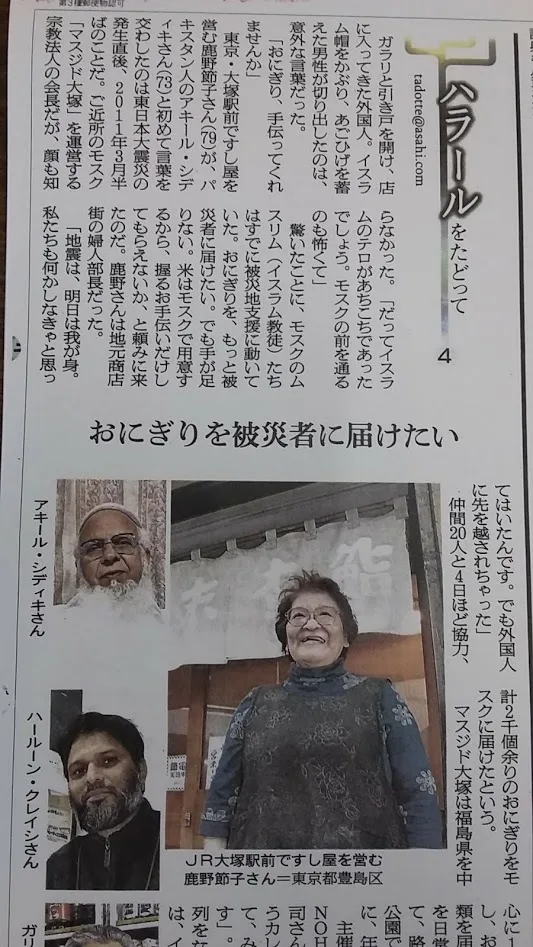 第3種郵便物認可
ハラールをたどって
4
tadotte@asahi.com
ガラリと引き戸を開け、店
に入ってきた外国人。イスラ
ム帽をかぶり、あごひげを蓄
えた男性が切り出したのは、
意外な言葉だった。
「おにぎり、手伝ってくれ
ませんか」
東京・大塚駅前ですし屋を
営む鹿野節子さん(79)が、パ
キスタン人のアキール・シデ
ィキさん(73)と初めて言葉を
交わしたのは東日本大震災の
発生直後、2011年3月半
ばのことだ。ご近所のモスク
「マスジド大塚」を運営する
宗教法人の会長だが、顔も知
らなかった。「だってイスラ
ムのテロがあちこちであった
でしょう。モスクの前を通る
のも怖くて」
驚いたことに、モスクのム
スリム(イスラム教徒)たち
はすでに被災地支援に動いて
いた。おにぎりを、もっと被
災者に届けたい。でも手が足
りない。米はモスクで用意す
るから、握るお手伝いだけし
てもらえないか、と頼みに来
たのだ。鹿野さんは地元商店
街の婦人部長だった。
「地震は、明日は我が身。
私たちも何かしなきゃと思っ
おにぎりを被災者に届けたい
てはいたんです。でも外国人
に先を越されちゃった」
仲間20人と4日ほど協力、
計2千個余りのおにぎりをモ
スクに届けたという。
マスジド大塚は福島県を中
アキール・シディキさん
ハールーン・クレイシさん
鮨
JR大塚駅前ですし屋を営む
鹿野節子さん=東京都豊島区
心に
し、お
類を用
を日常
て、路
公園で
に、年
主催
NOH
司さん
うカレ
て、み
す」。
列をな
は、イ
ガリ